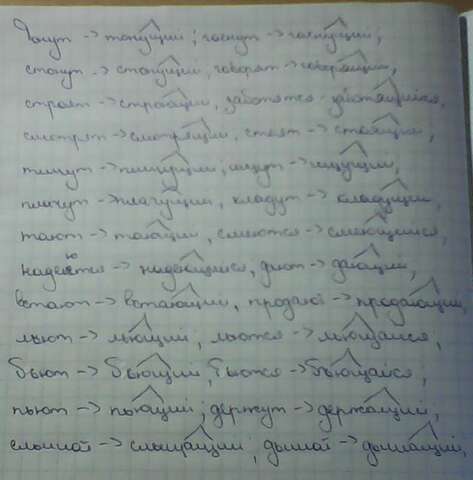 тонут -> тонущий; гаснут -> гаснущий;
стонут -> стонущий, говорят -> говорящий,
строят -> строящий, заботятся - заботящийся,
смотрят -> смотрящий, стоят -> стоящий,
пишут -> пишущий; ищут -> ищущий,
плачут -> плачущий, кладут -> кладущий,
тают -> тающий, смеются -> смеющийся,
надеются -> надеющийся, дают -> дающий,
встают -> встающий, продают -> продающий,
льют -> льющий; льются -> льющийся,
бьют -> бьющий, бьются -> бьющийся;
пьют -> пьющий; держут -> держащий,
слышат -> слышащий; дышат -> дышащий,